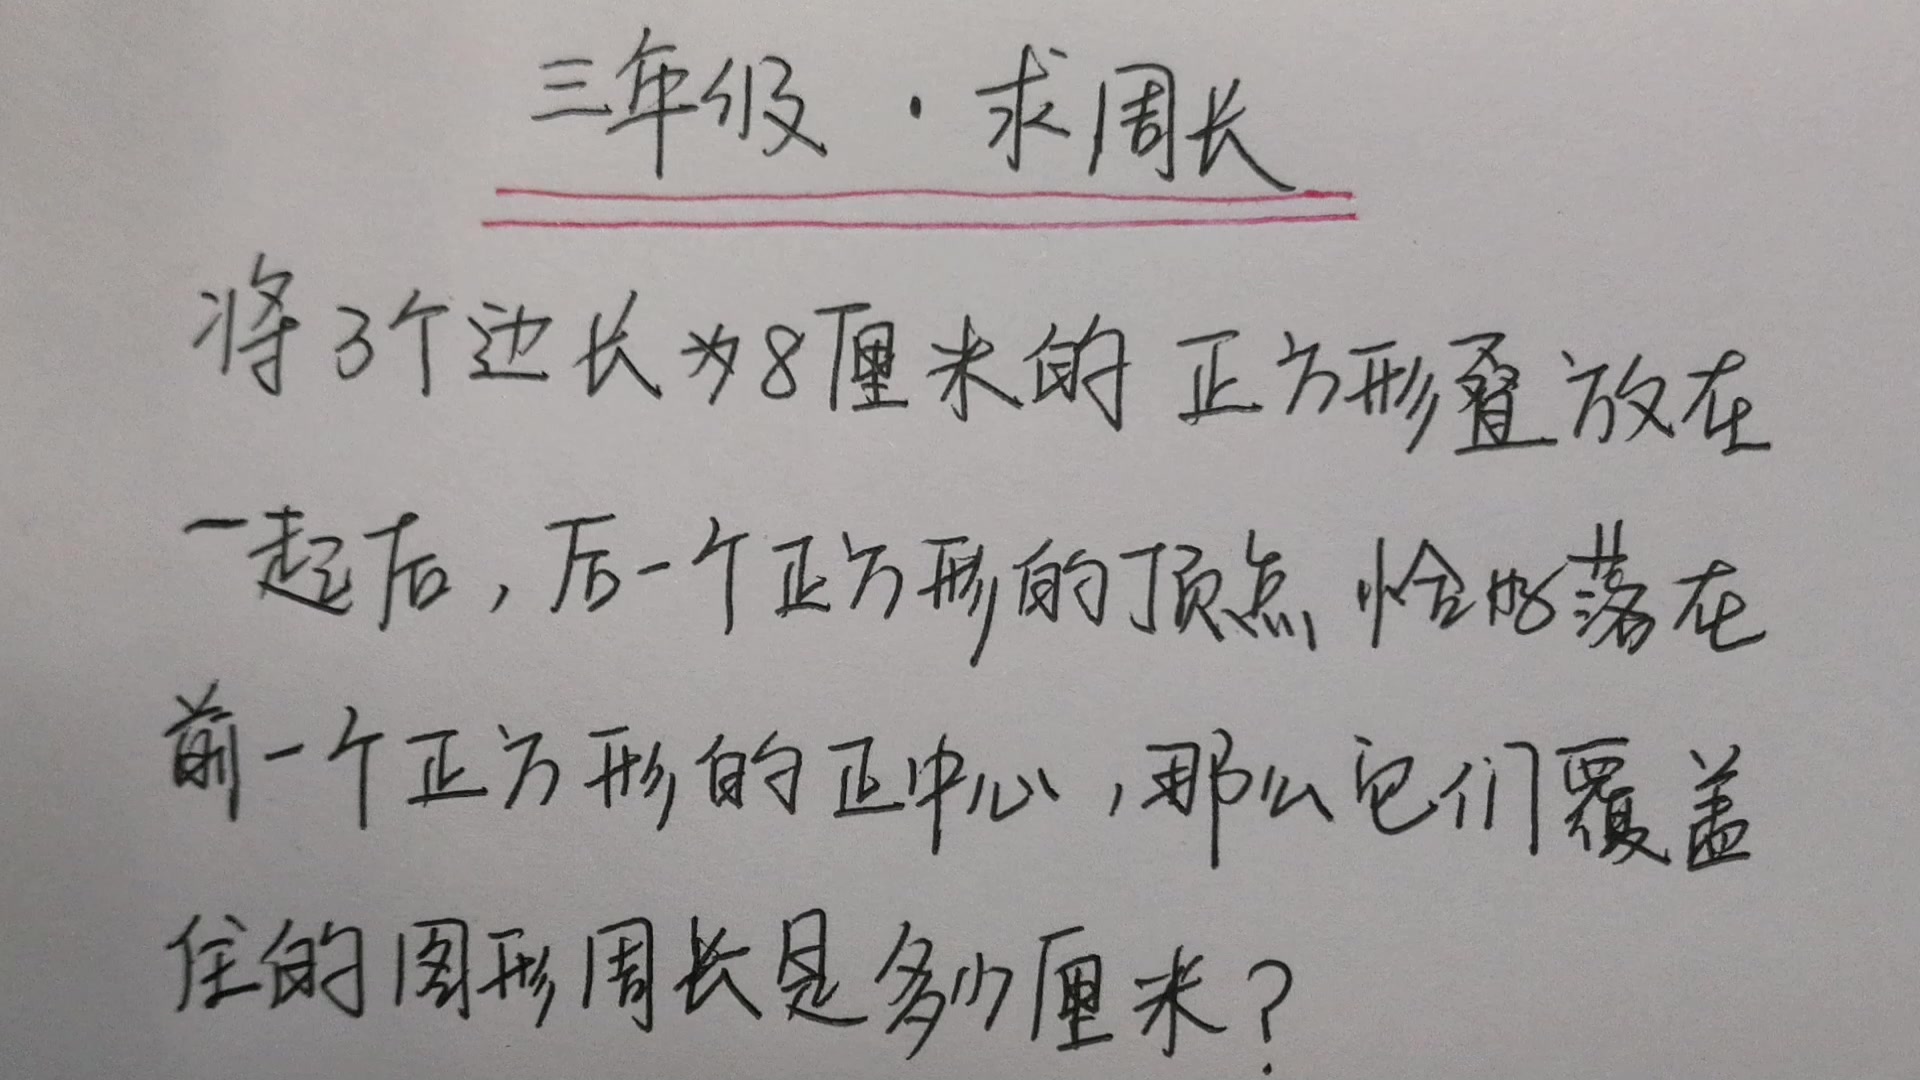 三年级·求周长
将3个边长为8厘米的正方形叠放在
一起后,后一个正方形的顶点恰好落在
前一个正方形的正中心,那么它们覆盖
住的图形周长是多少厘米?